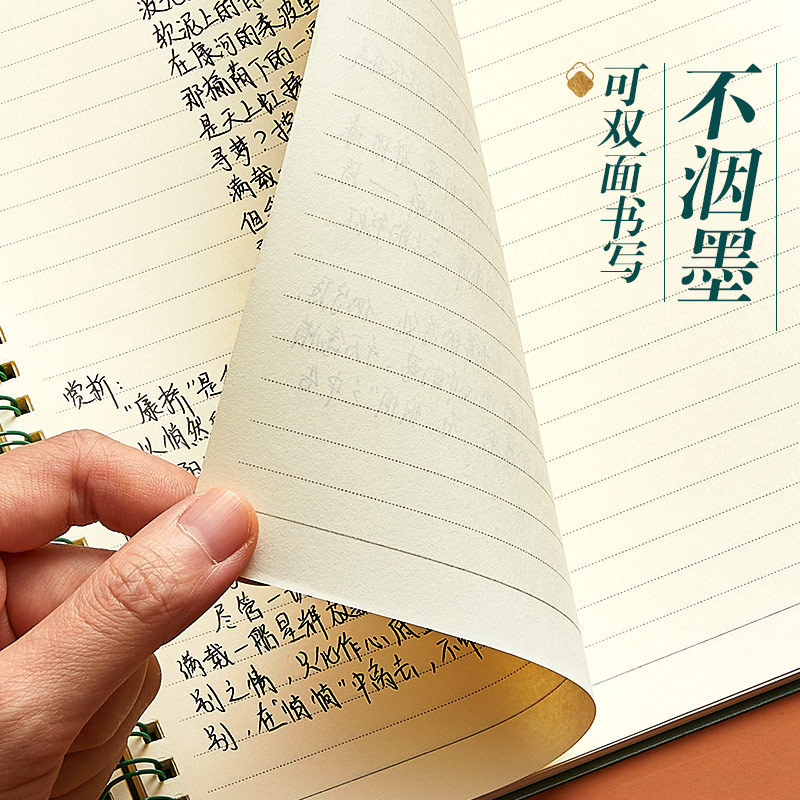 不洇墨
可双面书写
软泥上的青
在康河的柔波里
那榆荫下的一
是天上虹
寻梦？撑
满载
但我
赏析：
"康桥"是
以悄然
尽管一
满载一船星辉
别之情，只化作心底
别，在"悄悄"中离去，不